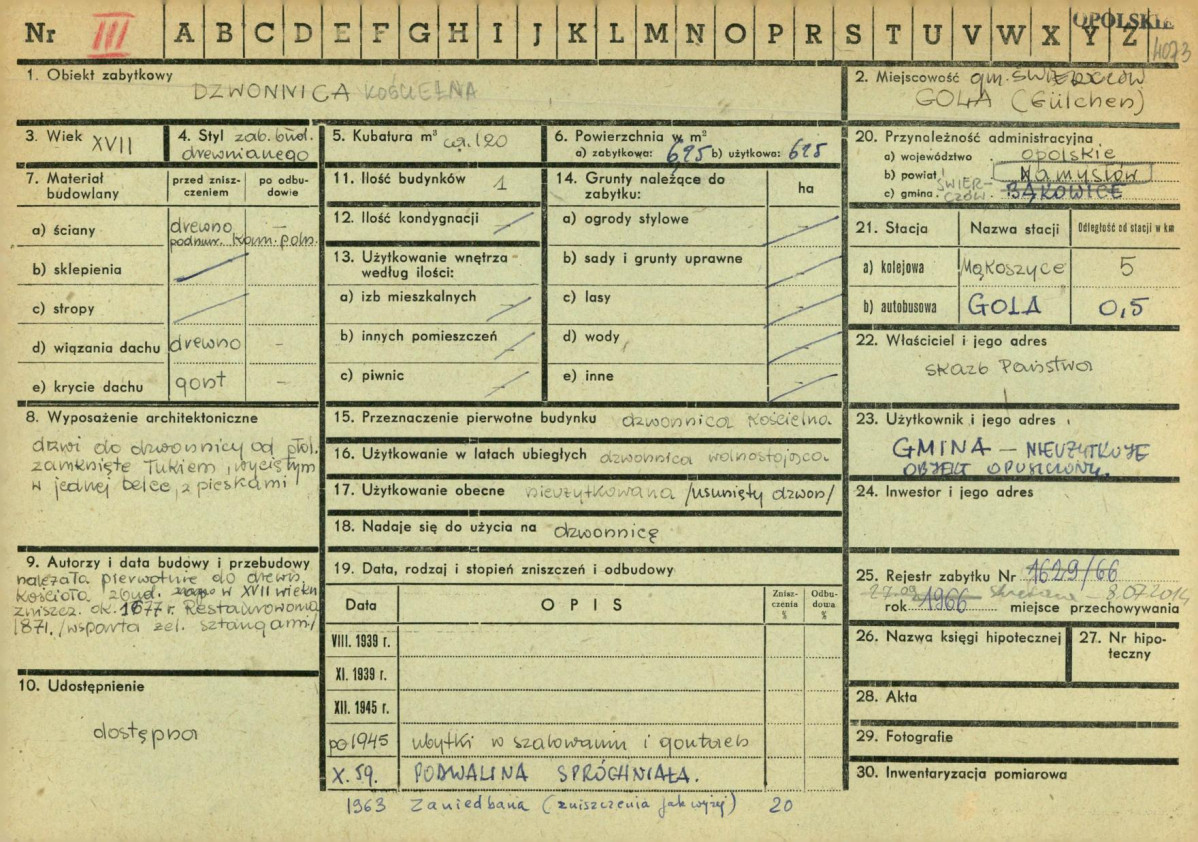 Nr III A B C D E F G H I J K L M N O P R S T U V W X Y Z
OPOLSKIE
4073
1. Obiekt zabytkowy
DZWONNICA KOŚCIELNA
2. Miejscowość gm. ŚWIERCZÓW
GOLA (Gülchen)
3. Wiek XVII
4. Styl zab. bud.
drewnianego
5. Kubatura m³ ca. 120
6. Powierzchnia w m²
a) zabytkowa: 625 b) użytkowa: 625
7. Materiał budowlany
przed zniszczeniem
po odbudowie
a) ściany drewno –
podmur. kam. poln.
b) sklepienia
c) stropy
d) wiązania dachu drewno –
e) krycie dachu gont –
8. Wyposażenie architektoniczne
drzwi do dzwonnicy od płd.
zamknięte łukiem, wyciętym
w jednej belce, z pieskami
9. Autorzy i data budowy i przebudowy
należała pierwotnie do drewn.
kościoła zbud. w XVII wieku
zniszcz. ok. 1677 r. Restaurowana
1871. /wsparta żel. sztangami/
10. Udostępnienie
dostępna
11. Ilość budynków 1
12. Ilość kondygnacji
13. Użytkowanie wnętrza
według ilości:
a) izb mieszkalnych
b) innych pomieszczeń
c) piwnic
14. Grunty należące do
zabytku:
ha
a) ogrody stylowe
b) sady i grunty uprawne
c) lasy
d) wody
e) inne
15. Przeznaczenie pierwotne budynku dzwonnica kościelna
16. Użytkowanie w latach ubiegłych dzwonnica wolnostojąca
17. Użytkowanie obecne nieużytkowana /usunięty dzwon/
18. Nadaje się do użycia na dzwonnicę
19. Data, rodzaj i stopień zniszczeń i odbudowy
Data
OPIS
Zniszczenia %
Odbudowa %
VIII. 1939 r.
XI. 1939 r.
XII. 1945 r.
po 1945 ubytki w szalowaniu i gontach
X. 59. PODWALINA SPRÓCHNIAŁA.
1963 Zaniedbana (zniszczenia jak wyżej) 20
20. Przynależność administracyjna
a) województwo opolskie
b) powiat Namysłów
c) gmina ŚWIERCZÓW BĄKOWICE
21. Stacja
Nazwa stacji
Odległość od stacji w km
a) kolejowa Mąkoszyce 5
b) autobusowa GOLA 0,5
22. Właściciel i jego adres
Skarb Państwa
23. Użytkownik i jego adres
GMINA – NIEUŻYTKUJE
OBJEKT OPUSZCZONY.
24. Inwestor i jego adres
25. Rejestr zabytku Nr 1629/66
27.09 skreślono – 8.07.2014
rok 1966 miejsce przechowywania
26. Nazwa księgi hipotecznej
27. Nr hipoteczny
28. Akta
29. Fotografie
30. Inwentaryzacja pomiarowa